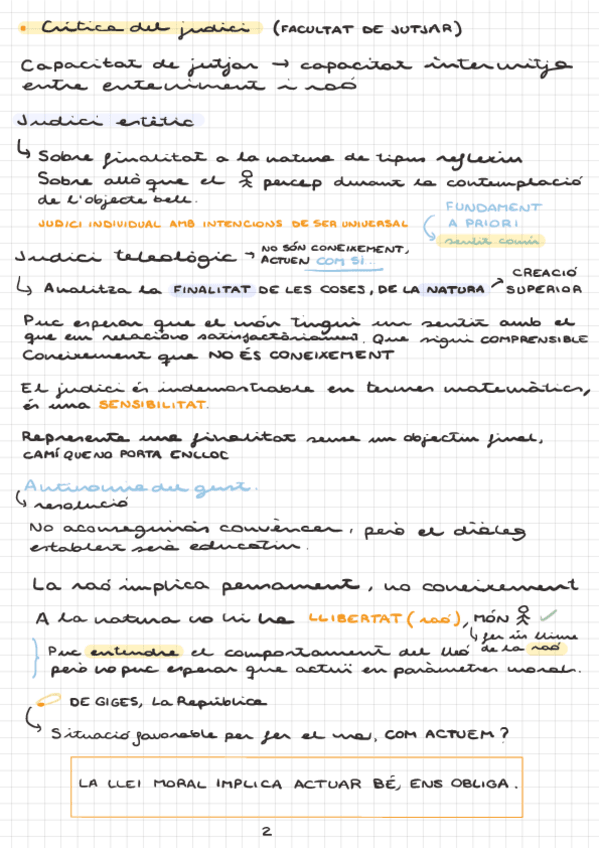 • Crítica del judici (FACULTAT DE JUTJAR)
Capacitat de jutjar → capacitat intermitja
entre enteniment i raó
Judici estètic
↳ Sobre finalitat a la natura de tipus reflexiu
Sobre allò que el percep durant la contemplació
de l'objecte bell.
JUDICI INDIVIDUAL AMB INTENCIONS DE SER UNIVERSAL
FUNDAMENT
A PRIORI
sentit comú
Judici teleològic → NO SÓN CONEIXEMENT,
ACTUEN COM SI...
↳ Analitza la FINALITAT DE LES COSES, DE LA NATURA → CREACIÓ
SUPERIOR
Puc esperar que el món tingui un sentit amb el
que em relaciono satisfactòriament. Que sigui COMPRENSIBLE
Coneixement que NO ÉS CONEIXEMENT
El judici és indemostrable en termes matemàtics,
és una SENSIBILITAT.
Representa una finalitat sense un objectiu final,
CAMÍ QUE NO PORTA ENLLOC
Antinomia del gust.
↳ resolució
No aconseguiràs convèncer, però el diàleg
establert serà educatiu.
La raó implica pensament, no coneixement
A la natura no hi ha LLIBERTAT (raó), MÓN ✓
↳ fer ús lliure
de la raó
Puc entendre el comportament del lleó
però no puc esperar que actuï en paràmetres morals.
DE GIGES, La República
↳ Situació favorable per fer el mal, COM ACTUEM?
LA LLEI MORAL IMPLICA ACTUAR BÉ, ENS OBLIGA.
2